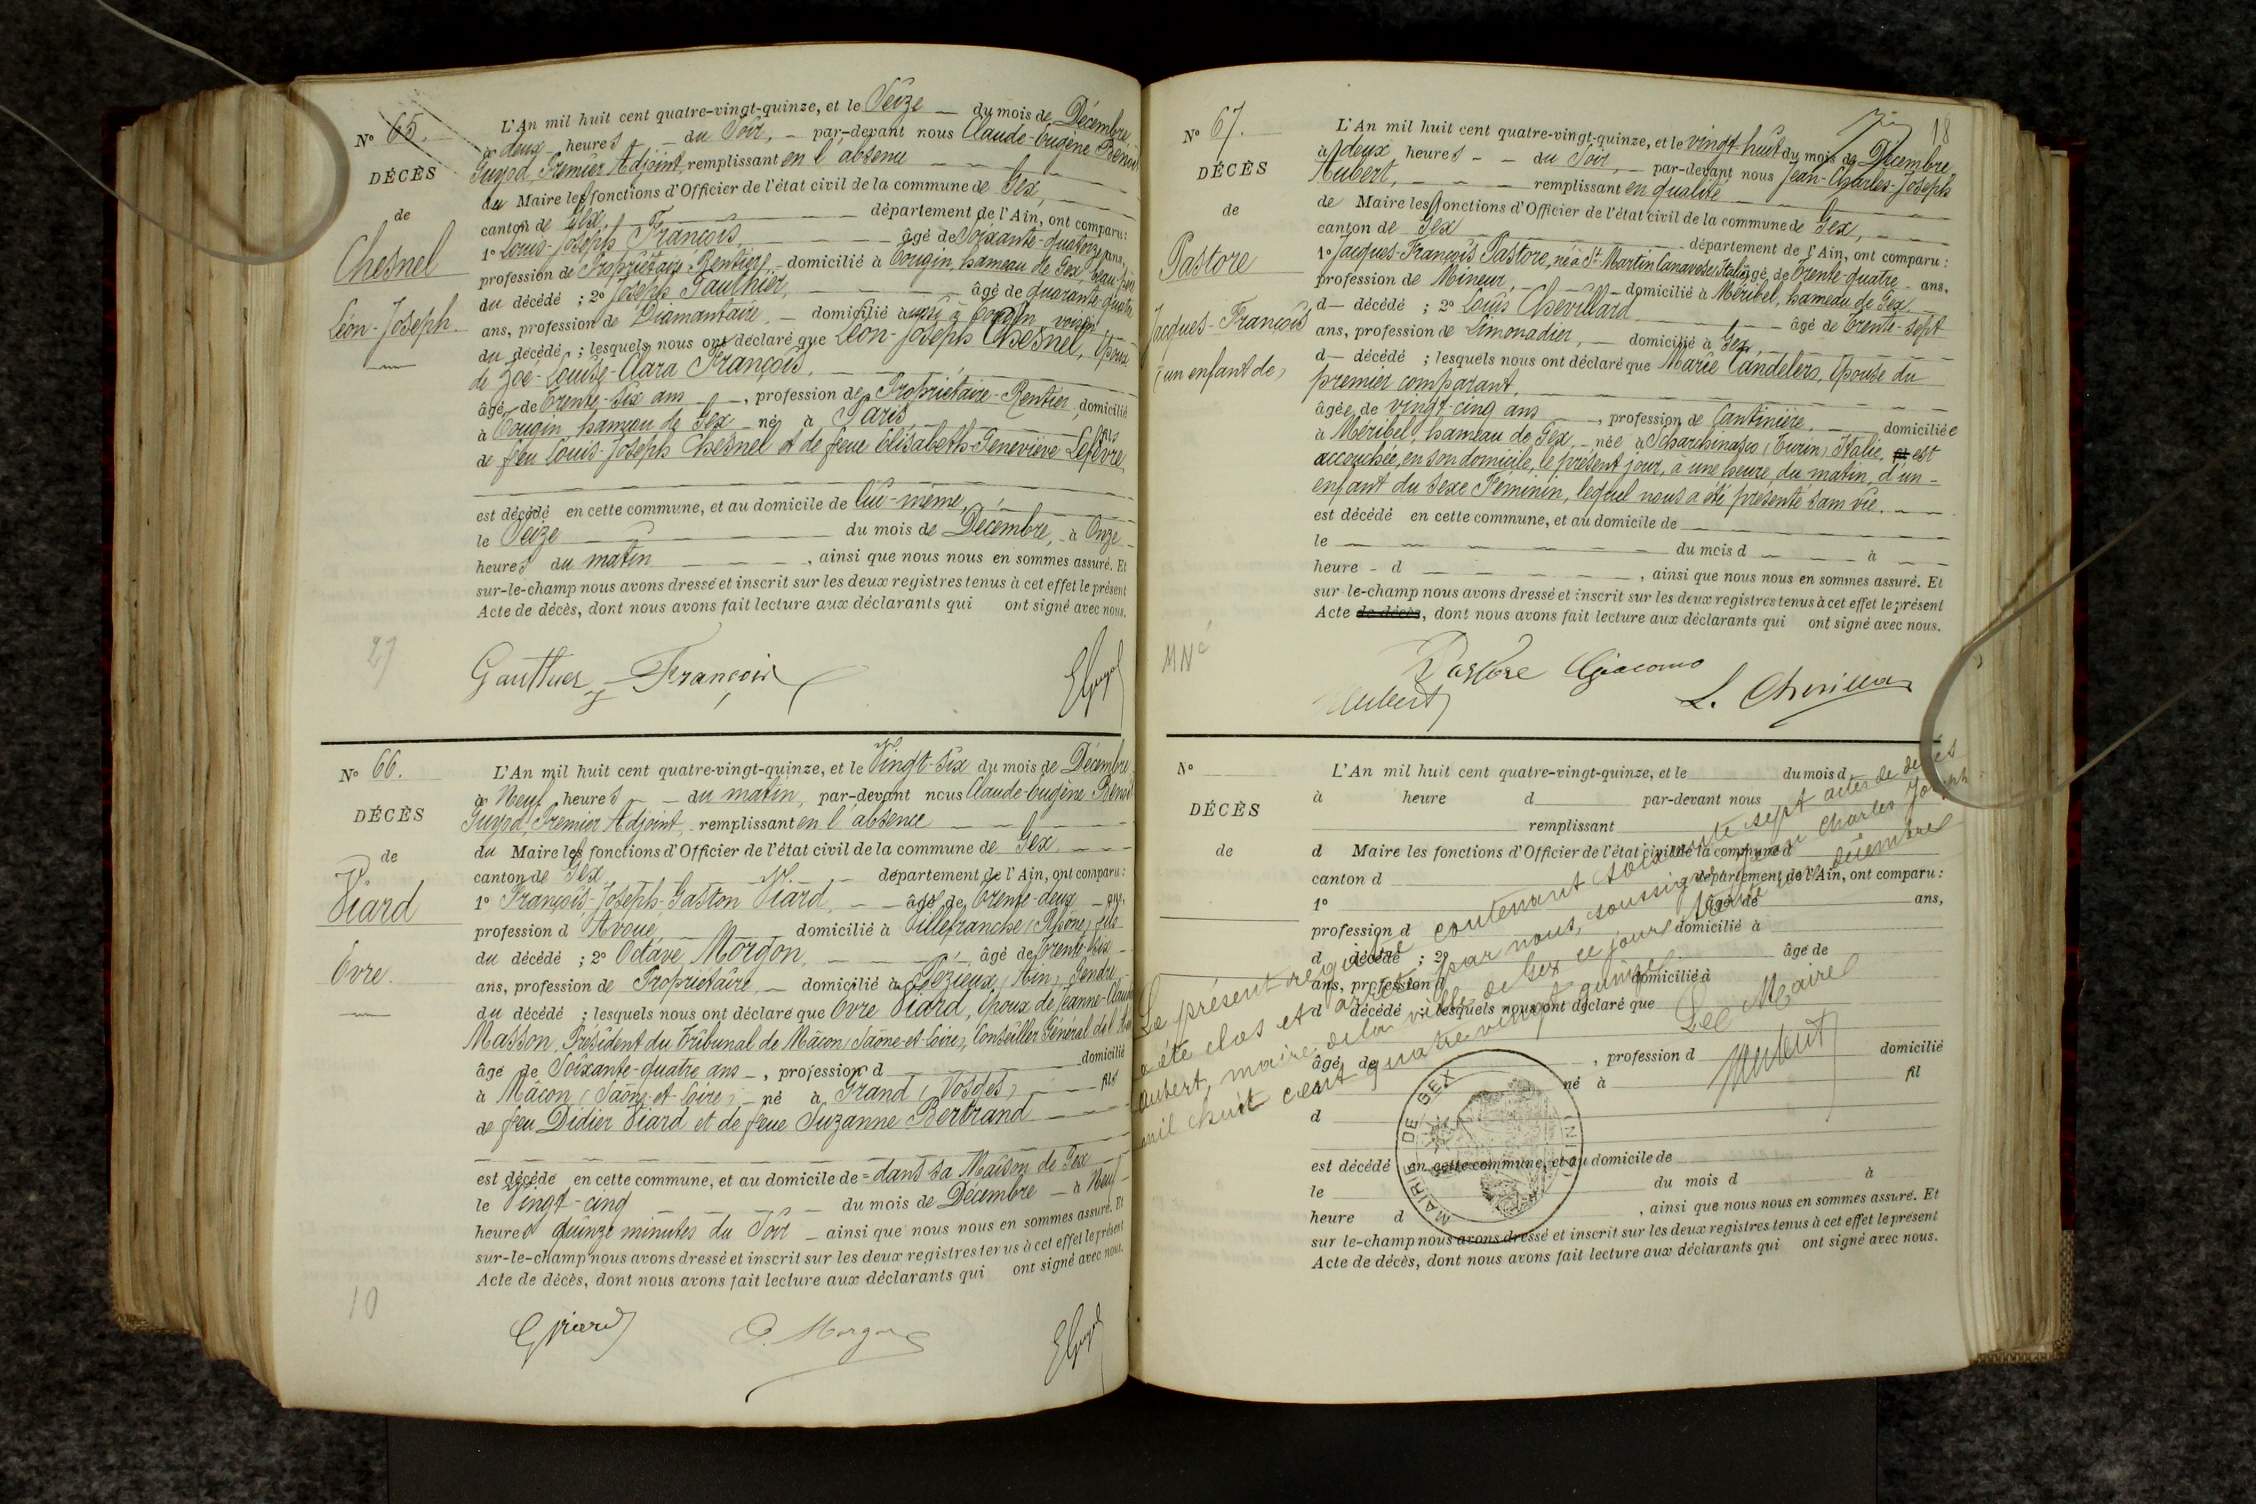 N° 65.
DÉCÈS
de
Chesnel
Léon-Joseph
L'An mil huit cent quatre-vingt-quinze, et le Seize du mois de Décembre,
à deux heures du Soir, par-devant nous Claude-Eugène Benoit
Guyod, Premier Adjoint, remplissant en l'absence
du Maire les fonctions d'Officier de l'état civil de la commune de Gex,
canton de Gex, département de l'Ain, ont comparu:
1° Louis-Joseph François, âgé de Soixante-quatorze ans,
profession de Propriétaire Rentier, domicilié à Tougin, hameau de Gex, beau-père
du décédé ; 2° Joseph Gauthier, âgé de quarante-quatre
ans, profession de Diamantaire, domicilié aussi à Tougin voisin
du décédé ; lesquels nous ont déclaré que Léon-Joseph Chesnel, Epoux
de Zoé-Louise-Clara François,
âgé de Trente-Six ans, profession de Propriétaire-Rentier, domicilié
à Tougin hameau de Gex né à Paris fils
de feu Louis-Joseph Chesnel et de feue Elisabeth-Geneviève Lefèvre
est décédé en cette commune, et au domicile de lui-même,
le Seize du mois de Décembre, à Onze
heures du matin, ainsi que nous nous en sommes assuré. Et
sur-le-champ nous avons dressé et inscrit sur les deux registres tenus à cet effet le présent
Acte de décès, dont nous avons fait lecture aux déclarants qui ont signé avec nous.
27
Gauthier François
N° 66.
DÉCÈS
de
Viard
Evre
L'An mil huit cent quatre-vingt-quinze, et le Vingt-Six du mois de Décembre
à Neuf heures du matin, par-devant nous Claude-Eugène Benoit
Guyod, Premier Adjoint, remplissant en l'absence
du Maire les fonctions d'Officier de l'état civil de la commune de Gex
canton de Gex département de l'Ain, ont comparu:
1° François-Joseph-Gaston Viard, âgé de Trente-deux ans,
profession d'Avoué, domicilié à Villefranche (Rhône) fils
du décédé ; 2° Octave Morgon, âgé de Trente-Six
ans, profession de Propriétaire, domicilié à Pézieux (Ain), Gendre
du décédé ; lesquels nous ont déclaré que Evre Viard, Epoux de Jeanne-Claude
Masson, Président du Tribunal de Mâcon (Saône-et-Loire), Conseiller Général de l'Ain
âgé de Soixante-quatre ans, profession d domicilié
à Mâcon (Saône-et-Loire), né à Grand (Vosges) fils
de feu Didier Viard et de feue Suzanne Bertrand
est décédé en cette commune, et au domicile de = dans sa Maison de Gex
le Vingt-cinq du mois de Décembre à Neuf
heures quinze minutes du Soir ainsi que nous nous en sommes assuré. Et
sur-le-champ nous avons dressé et inscrit sur les deux registres tenus à cet effet le présent
Acte de décès, dont nous avons fait lecture aux déclarants qui ont signé avec nous.
10
G Viard O. Morgon
18
N° 67.
DÉCÈS
de
Pastore
Jacques-François
(un enfant de)
L'An mil huit cent quatre-vingt-quinze, et le vingt-huit du mois de Décembre
à deux heures du Soir, par-devant nous Jean-Charles-Joseph
Aubert, remplissant en qualité
de Maire les fonctions d'Officier de l'état civil de la commune de Gex,
canton de Gex département de l'Ain, ont comparu:
1° Jacques-François Pastore, né à St Martin Canavese (Italie) âgé de Trente-quatre ans,
profession de Mineur, domicilié à Méribel, hameau de Gex
d décédé ; 2° Louis Chevillard âgé de Trente-sept
ans, profession de Limonadier, domicilié à Gex,
d décédé ; lesquels nous ont déclaré que Marie Candelero, Epouse du
premier comparant,
âgée de vingt-cinq ans, profession de Cantinière, domiciliée
à Méribel, hameau de Gex, née à Scharchinasco (Turin) Italie, est
accouchée, en son domicile, le présent jour, à une heure du matin, d'un
enfant du Sexe Féminin, lequel nous a été présenté sans vie.
est décédé en cette commune, et au domicile de
le du mois d à
heure d, ainsi que nous nous en sommes assuré. Et
sur-le-champ nous avons dressé et inscrit sur les deux registres tenus à cet effet le présent
Acte de décès, dont nous avons fait lecture aux déclarants qui ont signé avec nous.
MNé
Pastore Giacomo
Aubert L. Chevillard
N°
DÉCÈS
de
L'An mil huit cent quatre-vingt-quinze, et le du mois d
à heure d par-devant nous
remplissant
d Maire les fonctions d'Officier de l'état civil de la commune d
canton d département de l'Ain, ont comparu:
1° âgé de ans,
profession d domicilié à
d décédé ; 2° âgé de
ans, profession d domicilié à
d décédé ; lesquels nous ont déclaré que
âgé de, profession d domicilié
à né à fil
d
est décédé en cette commune, et au domicile de
le du mois d à
heure d, ainsi que nous nous en sommes assuré. Et
sur le-champ nous avons dressé et inscrit sur les deux registres tenus à cet effet le présent
Acte de décès, dont nous avons fait lecture aux déclarants qui ont signé avec nous.
Le présent registre contenant soixante sept actes de décès
a été clos et arrêté par nous, soussigné Jean Charles Joseph
Aubert, maire de la ville de Gex ce jour trente un décembre
mil huit cent quatre vingt quinze
Le Maire
Aubert
MAIRIE DE GEX
(AIN)